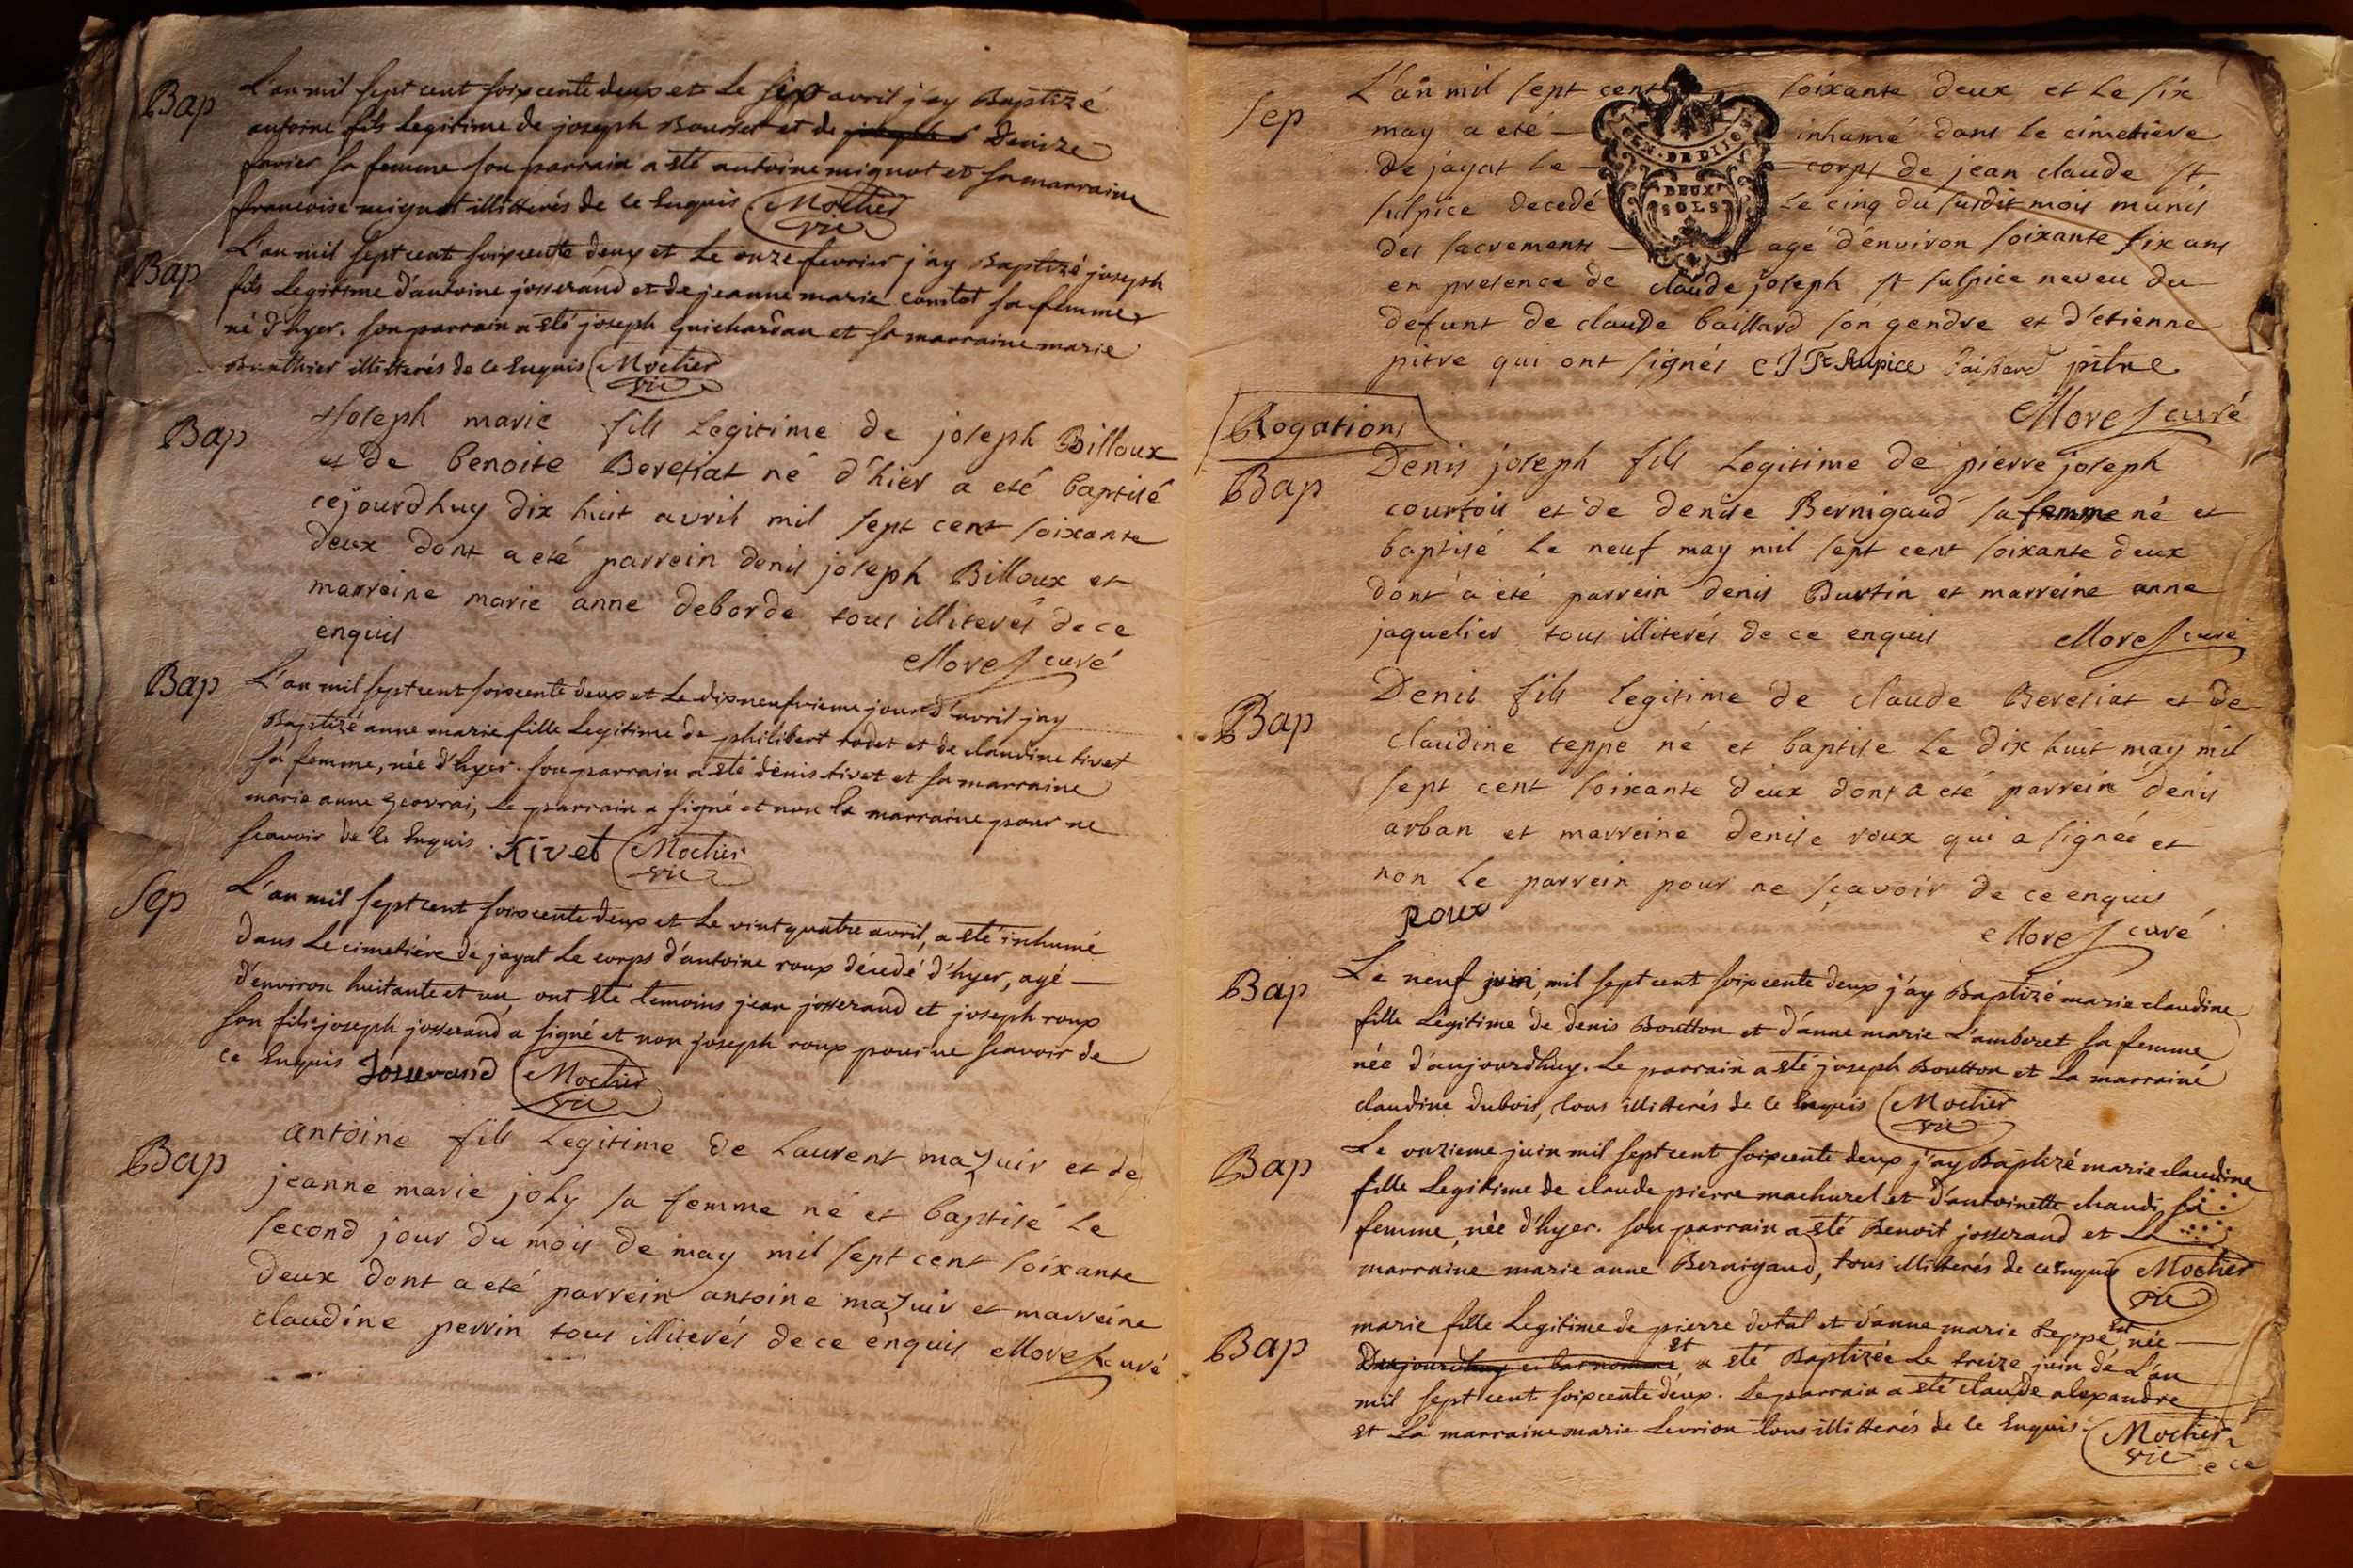 Bap
L'an mil sept cent soixcente deux et le six avril j'ay Baptizé
antoine fils Legitime de joseph Bourset et de Denize
favier sa femme son parrain a eté antoine mignot et sa marraine
francoise mignot illitterés de ce Enquis Mochier
vic
Bap
L'an mil sept cent soixcente deux et Le onze fevrier j'ay Baptizé joseph
fils Legitime d'antoine josserand et de jeanne marie comtet sa femme
né d'hyer. son parrain a eté joseph guichardan et sa marraine marie
Bunthier illitterés de ce Enquis Mochier
vic
Bap
joseph marie fils Legitime de joseph Billoux
et de benoite Beretiat né d'hier a eté baptisé
cejourdhuy dix huit avril mil sept cent soixante
deux dont a eté parrein denis joseph Billoux et
marreine marie anne deborde tous illiterés de ce
enquis
Mores curé
Bap
L'an mil sept cent soixcente deux et Le dixneufvieme jour d'avril jay
Baptizé anne marie fille Legitime de philibert rodet et de claudine tivet
sa femme, née d'hyer. son parrain a eté denis tivet et sa marraine
marie anne geovrai, Le parrain a signé et non la marraine pour ne
scavoir de ce Enquis. tivet Mochier
vic
Sep
L'an mil sept cent soixcente deux et Le vint quatre avril, a eté inhumé
dans Le cimetiére de jayat Le corps d'antoine roux décedé d'hyer, agé
d'environ huitante et un, ont eté temoins jean josserand et joseph roux
son fils joseph josserand a signé et non joseph roux pour ne scavoir de
ce Enquis Josserand Mochier
vic
Bap
antoine fils Legitime de Laurent mazuir et de
jeanne marie joly sa femme né et baptisé Le
second jour du mois de may mil sept cent soixante
deux dont a eté parrein antoine mazuir et marreine
claudine perrin tous illiterés de ce enquis Mores curé
Sep
L'an mil sept cent soixante deux et Le six
may a eté inhumé dans Le cimetiere
de jayat Le corps de jean claude st
sulpice decedé Le cinq du susdit mois munis
des sacrements agé d'environ soixante six ans
GEN. DE DIJON
DEUX
SOLS
en presence de claude joseph st sulpice neveu du
defunt de claude baillard son gendre et d'etienne
pitre qui ont signés C J St Sulpice Baillard pitre
Mores curé
Rogations
Bap
Denis joseph fils Legitime de pierre joseph
courtois et de denise Bernigaud sa femme né et
baptisé Le neuf may mil sept cent soixante deux
dont a eté parrein denis Burtin et marreine anne
jaquelier tous illiterés de ce enquis Mores curé
Bap
Denis fils Legitime de claude Beretiat et de
claudine teppe né et baptise Le dix huit may mil
sept cent soixante deux dont a eté parrein denis
arban et marreine denise roux qui a signée et
non Le parrein pour ne sçavoir de ce enquis
Roux
Mores curé
Bap
Le neuf juin mil sept cent soixcente deux j'ay Baptizé marie claudine
fille Légitime de denis Boutton et d'anne marie L'amberet sa femme
née d'aujourdhuy. Le parrain a eté joseph Boutton et La marraine
claudine dubois, tous illitterés de ce Enquis Mochier
vic
Bap
Le onzieme juin mil sept cent soixcente deux j'ay Baptizé marie claudine
fille Legitime de claude pierre machurel et d'antoinette chaudi sa
femme, née d'hyer. son parrain a eté Benoit josserand et La
marraine marie anne Bernigaud, tous illitterés de ce Enquis Mochier
vic
Bap
marie fille Legitime de pierre dotal et d'anne marie teppe, est née
et a eté Baptizée Le treize juin de L'an
mil sept cent soixcente deux. Le parrain a eté claude alexandre
et La marraine marie Levrion tous illitterés de ce Enquis. Mochier
vic